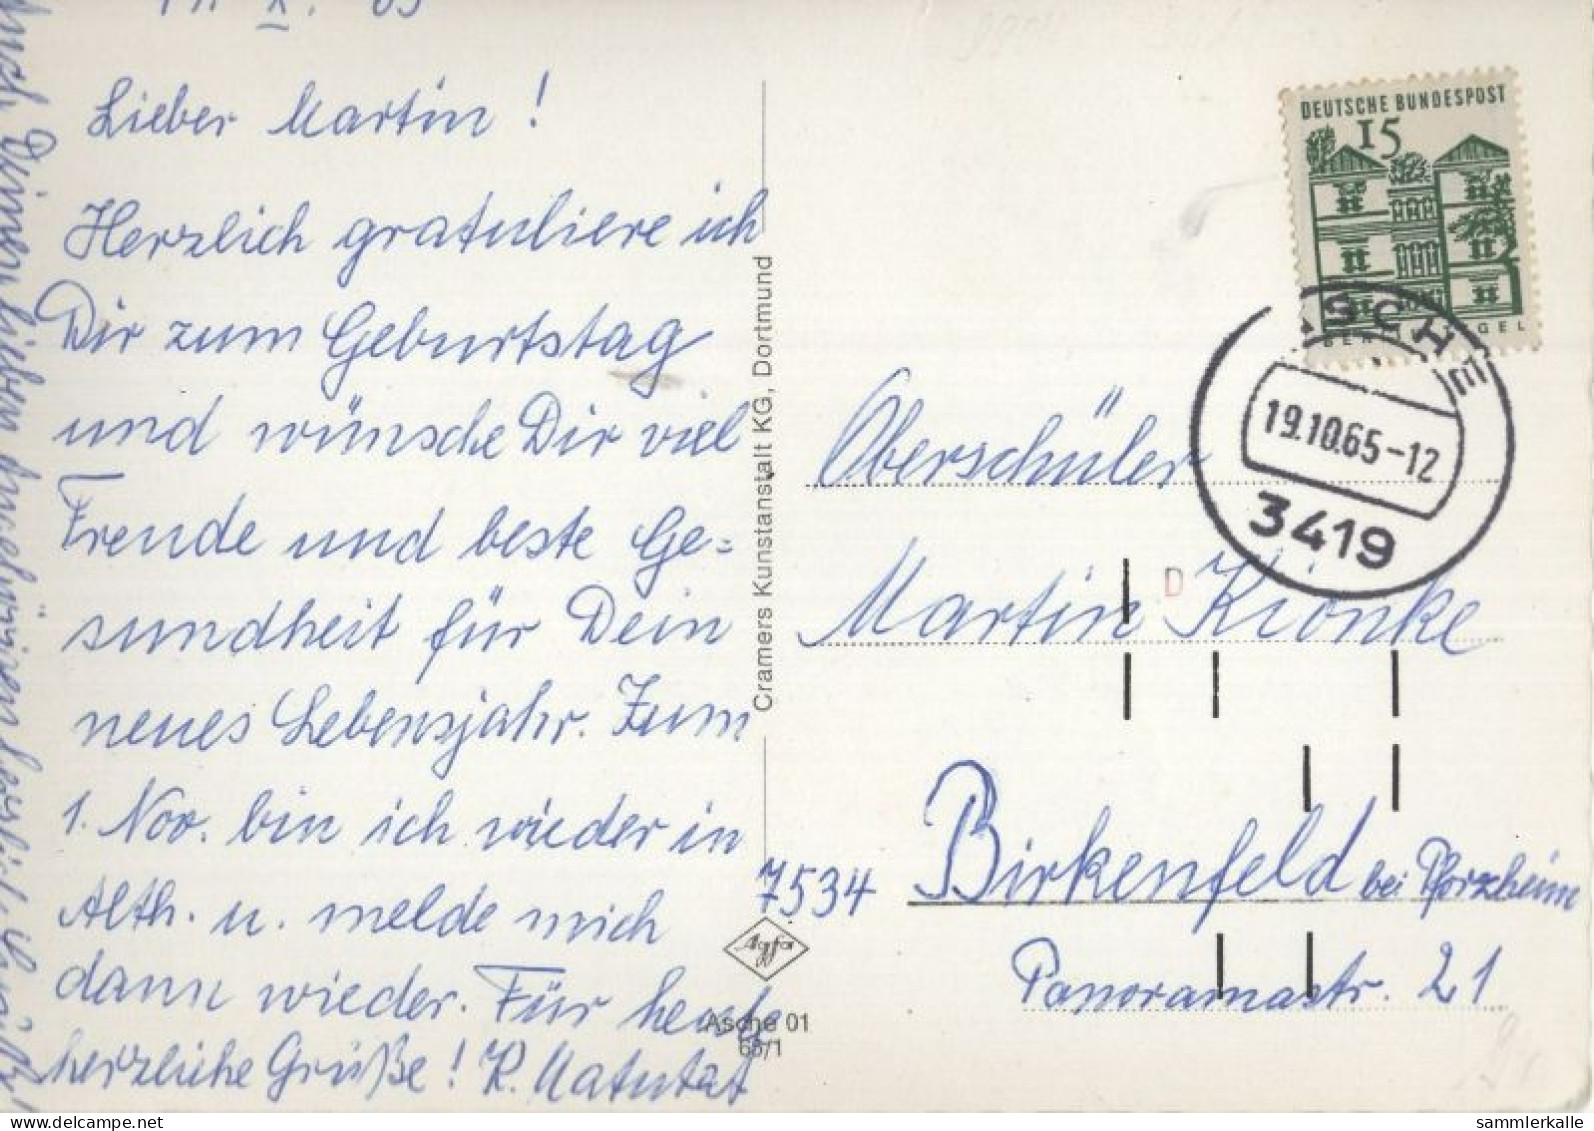 X. 65
Lieber Martin!
Herzlich gratuliere ich
Dir zum Geburtstag
und wünsche Dir viel
Freude und beste Ge=
sundheit für Dein
neues Lebensjahr. Zum
1. Nov. bin ich wieder in
Alth. u. melde mich
dann wieder. Für heute
herzliche Grüße! K. Matutat
Auch Deinen lieben Angehörigen herzlich. Grüße!
Cramers Kunstanstalt KG, Dortmund
Agfa
Asche 01
65/1
DEUTSCHE BUNDESPOST
15
BERLIN TEGEL
ASCHE
19.10.65-12
3419
Oberschüler
Martin Kionke
D
7534 Birkenfeld bei Pforzheim
Panoramastr. 21
delcampe.net
sammlerkalle